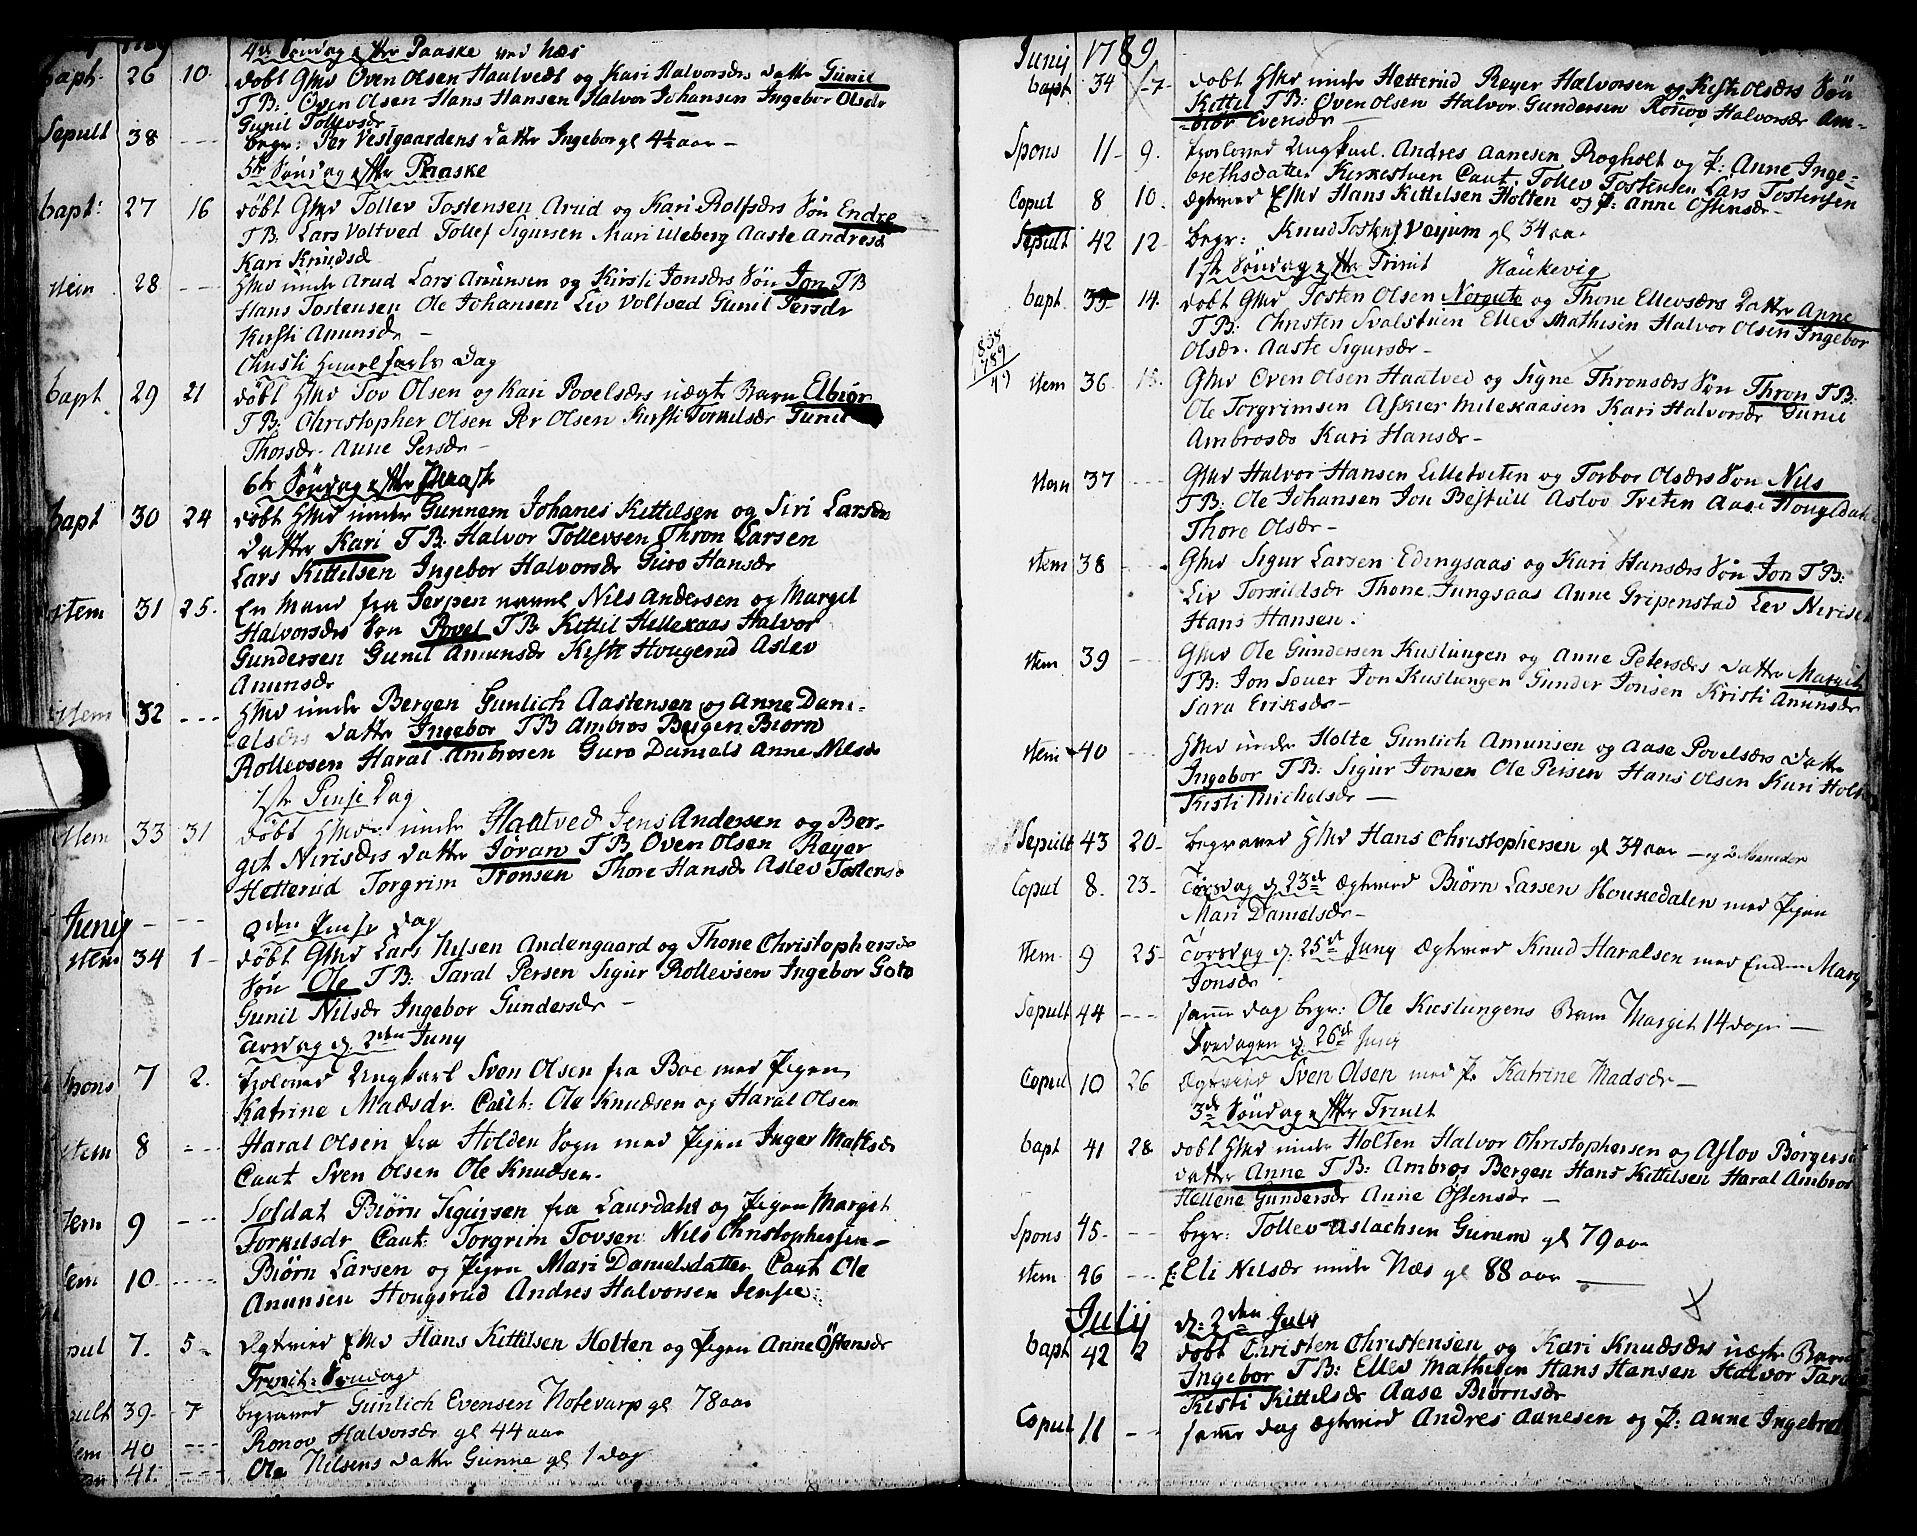 4de Søndag efter Paaske ved Næs
bapt. 26 10. døbt Gmd Oven Olsen Haatvedt og Kari Halvorsdrs datter Gunil
TB: Oven Olsen Hans Hansen Halvor Johansen Ingebor Olsdr
Gunil Tollevsdr
Sepult 38 --- begr: Per Vestgaardens datter Ingebor gl 4½ aar —
5te Søndag efter Paaske
bapt: 27 16 døbt Gmd Tollev Tostensen Arud og Kari Rolfsdrs Søn Endre
TB: Lars Voltved Tollef Sigursen Mari Uleberg Aaste Andresd
Kari Knudsd
item 28 --- Hmd under Arud Lars Anunsen og Kirsti Jonsdrs Søn Jon TB
Hans Tostensen Ole Johansen Liv Voltvad Gunil Persdr
Kirsti Anunsdr —
Christi Himmelfarts Dag
bapt 29 21 døbt Hmd Tov Olsen og Kari Povelsdrs uægt Barn Elbiør
TB: Christopher Olsen Per Olsen Kirsti Torkilsdr Gunil
Thorsdr Anne Persdr —
6te Søndag efter Paask
bapt 30 24 døbt Hmd under Gunnem Johanes Kittilsen og Siri Larsdrs
datter Kari TB. Halvor Tollevsen Thron Larsen
Lars Kittilsen Ingebor Halvorsdr Guro Hansdr
item 31 25. En Mand fra Jerpen navnl Nils Andersen og Margit
Halvorsdrs Søn Povel TB Kittil Hellekaas Halvor
Gundersen Gunil Amunsdr Kisti Hougerud Aslev
Anunsdr
item 32 --- Hmd under Bergen Gunlich Aastensen og Anne Dani-
elsdrs datter Ingebor TB Ambros Bergen Biørn
Rollevsen Haral Ambrosen Guro Daniels Anne Nilsdr
1ste Pinse Dag
item 33 31 døbt Hmd under Haatved Jens Andersen og Ber-
get Nirisdrs datter Jøran TB Oven Olsen Reyer
Hetterud Torgrim Tronsen Thore Hansdr Aslev Tostensd
Junij — --- 2den Pinse dag
item 34 1 - døbt Gmd Lars Nilsen Andengaard og Thone Christophersdr
Søn Ole TB: Taral Persen Sigur Rollevsen Ingebor Goto
Gunil Nilsdr Ingebor Gundersdr —
Tirsdag d. 2den Juny
Spons 7 2. Trolovad Ungkarl Sven Olsen fra Boe med Pigen
Katrine Madsdr. Caut: Ole Knudsen og Haral Olsen
item 8 --- Haral Olsen fra Holden Sogn med Pigen Inger Matisdr
Caut Sven Olsen Ole Knudsen.
item 9 --- Soldat Biørn Sigursen fra Laurdahl og Pigen Margit
Torkilsdr Caut: Torgrim Tovsen Nils Christophersen —
item 10. ---- Biørn Larsen og Pigen Mari Danielsdatter Caut Ole
Anunsen Hougsrud Andres Halvorsen
Copul 7. 5 - Ægteviad Emd Hans Kittilsen Holten og Pigen Anne Östensdr
Trinit: Søndag
Sepult 39. 7 begraved Gunlich Evensen Notevarp gl 78 aar
item 40 --- Ronov Halvorsdr gl 44 aar
item 41. --- Ole Nilsens datter Gunne gl 1 dag

Junij 1789
bapt. 34 7 - døbt Hmd under Hetterud Reyer Halvorsen og Kisti Olsdrs Søn
Kittil TB: Oven Olsen Halvor Gundersen Ronov Halvorsdr Am-
Evensdr —
Spons 11 - 9. Trolovad Ungkarl. Andres Aanesen Rogholt og P: Anne Inge-
brethsdatter Kirkestuen Caut. Tollev Tostensen Lars Tostensen
Copul 8 10. Ægteviad Emd Hans Kittelsen Holten og P: Anne Ostensdr —
Sepult 42 12 - begr: Knud Tosken gl 34 aar
1ste Søndag efter Trinit Haukevig
bapt. 35 14. døbt Gmd Tosten Olsen Norgute og Thone Ellevsdrs datter Anne
TB: Christen Svalstuen Ellev Mathisen Halvor Olsen Ingebor
Olsdr. Aaste Sigursdr —
1838
1789
49
item 36 Gmd Oven Olsen Haatved og Signe Thronsdrs Søn Thron TB:
Ole Torgrimsen Askier Milekaasen Kari Halvorsdr Gunil
Ambrosdr Kari Hansdr —
item 37 --- Gmd Halvor Hansen Lilletveten og Torbor Olsdrs Søn Nils
TB: Ole Johansen Jon Bestull Aslov Tveten Aase Hougldah
Thore Olsdr —
item 38 --- Gmd Sigur Larsen Edingsaas og Kari Hansdrs Søn Jon TB:
Liv Torkildsdr Thone Jungsaas Anne Gripenstad Lev Nirisen
Hans Hansen.
item 39 --- Gmd Ole Gundersen Kuslungen og Anne Petersdrs datter Margit
TB: Jon Souer Jon Kuslungen Gunder Jonsen Kristi Anunsdr
Sara Eriksdr —
item 40 --- Hmd under Holte Gunlich Amunsen og Aase Povelsdrs datter
Ingebor TB: Sigur Jonsen Ole Persen Hans Olsen Kari Holt
Kisti Michelsdr —
Sepult 43 20 - begraved Hmd Hans Christophersen gl 34 aar — og 2 Maaneder
Copul 8. 23 - Tirsdag d 23de Ægteviad Biørn Larsen Houkedalen med Pigen
Mari Danielsdr —
item 9 25 - Torsdag d. 25de Juny Ægteviad Knud Haralsen med Enken Marg
Jonsdr
Sepult 44 --- samme dag begr: Ole Kuslungens Barn Margit 14 dage —
Fredagen d 26de Juny
Copul 10 26 Ægteviad Sven Olsen med P: Katrine Madsdr —
3de Søndag efter Trinit
bapt 41 28 døbt Hmd under Holten Halvor Christophersen og Aslov Börgersd
datter Anne TB: Ambros Bergen Hans Kittilsen Haral Ambros
Hellene Gundersdr Anne Östensdr —
Spons 45 - --- begr: Tollev Aslachsen Gunem gl 79 aar
item 46 --- E: Eli Nilsdr under Næs gl 88 aar —
Julij d: 2den July
bapt 42 2 døbt Christen Christensen og Kari Knudsdrs uægte Barn
Ingebor TB: Ellev Mathisen Hans Hansen Halvor Tara
Kisti Kittilsdr Aase Biørnsdr
Copul 11 -- samme dag Ægteviad Andres Aanesen og P: Anne Ingebret